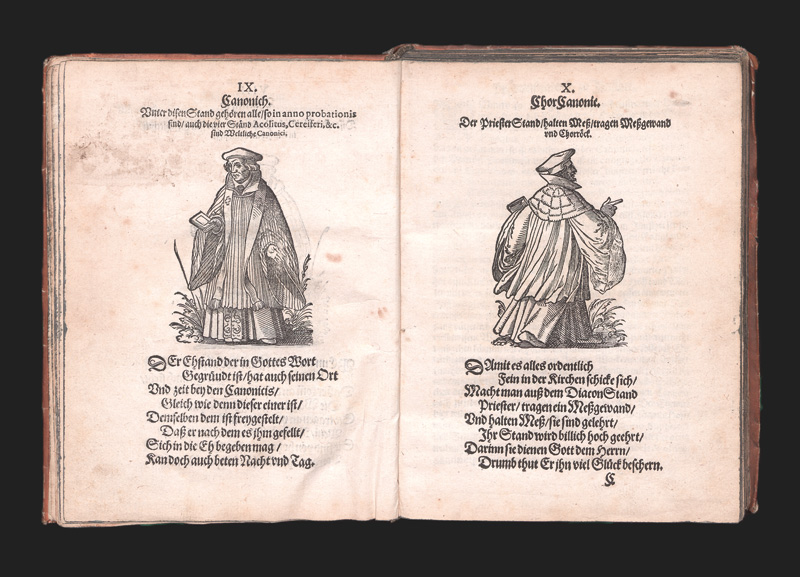 IX.
Canonich.
Vnter disen Stand gehören alle/so in anno probationis
sind/ auch die vier Ständ Acolitus, Ceroiferi, &c.
sind Weltliche Canonici.
DEr Ehstand der in Gottes Wort
Gegründt ist/hat auch seinen Ort
Vnd zeit bey den Canonicis/
Gleich wie denn dieser einer ist/
Demselben dem ist freygestelt/
Daß er nach dem es jhm gefellt/
Sich in die Eh begeben mag/
Kan doch auch beten Nacht vnd Tag.
X.
ChorCanonit.
Der Priester Stand/halten Meß/tragen Meßgewand
vnd Chorröck.
DAmit es alles ordentlich
Fein in der Kirchen schicke sich/
Macht man auß dem Diacon Stand
Priester/ tragen ein Meßgewand/
Vnd halten Meß/sie sind gelehrt/
Ihr Stand wird billich hoch geehrt/
Darinn sie dienen Gott dem Herrn/
Drumb thut Er jhn viel Glück beschern.
C